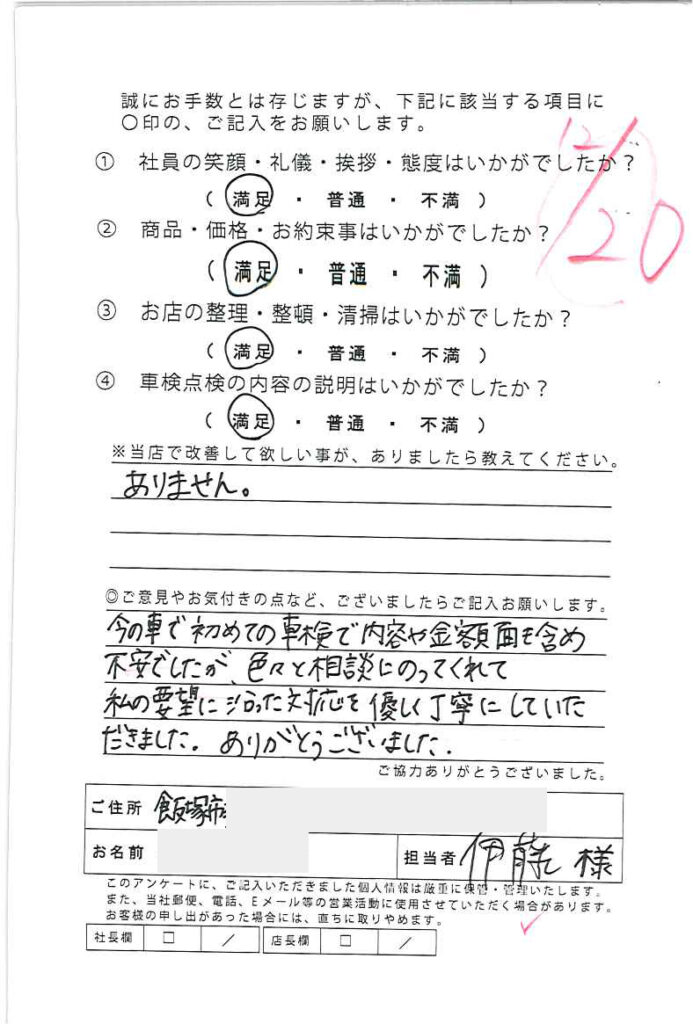 誠にお手数とは存じますが、下記に該当する項目に
〇印の、ご記入をお願いします。
12/20
① 社員の笑顔・礼儀・挨拶・態度はいかがでしたか？
( 満足 ・ 普通 ・ 不満 )
② 商品・価格・お約束事はいかがでしたか？
( 満足 ・ 普通 ・ 不満 )
③ お店の整理・整頓・清掃はいかがでしたか？
( 満足 ・ 普通 ・ 不満 )
④ 車検点検の内容の説明はいかがでしたか？
( 満足 ・ 普通 ・ 不満 )
※当店で改善して欲しい事が、ありましたら教えてください。
ありません。
◎ご意見やお気付きの点など、ございましたらご記入お願いします。
今の車で初めての車検で内容や金額面も含め
不安でしたが、色々と相談にのってくれて
私の要望に沿った対応を優しく丁寧にしていた
だきました。ありがとうございました。
ご協力ありがとうございました。
ご住所 飯塚市
お名前
担当者 伊藤 様
このアンケートに、ご記入いただきました個人情報は厳重に保管・管理いたします。
また、当社郵便、電話、Eメール等の営業活動に使用させていただく場合があります。
お客様の申し出があった場合には、直ちに取りやめます。
社長欄 □ ／ 店長欄 □ ／